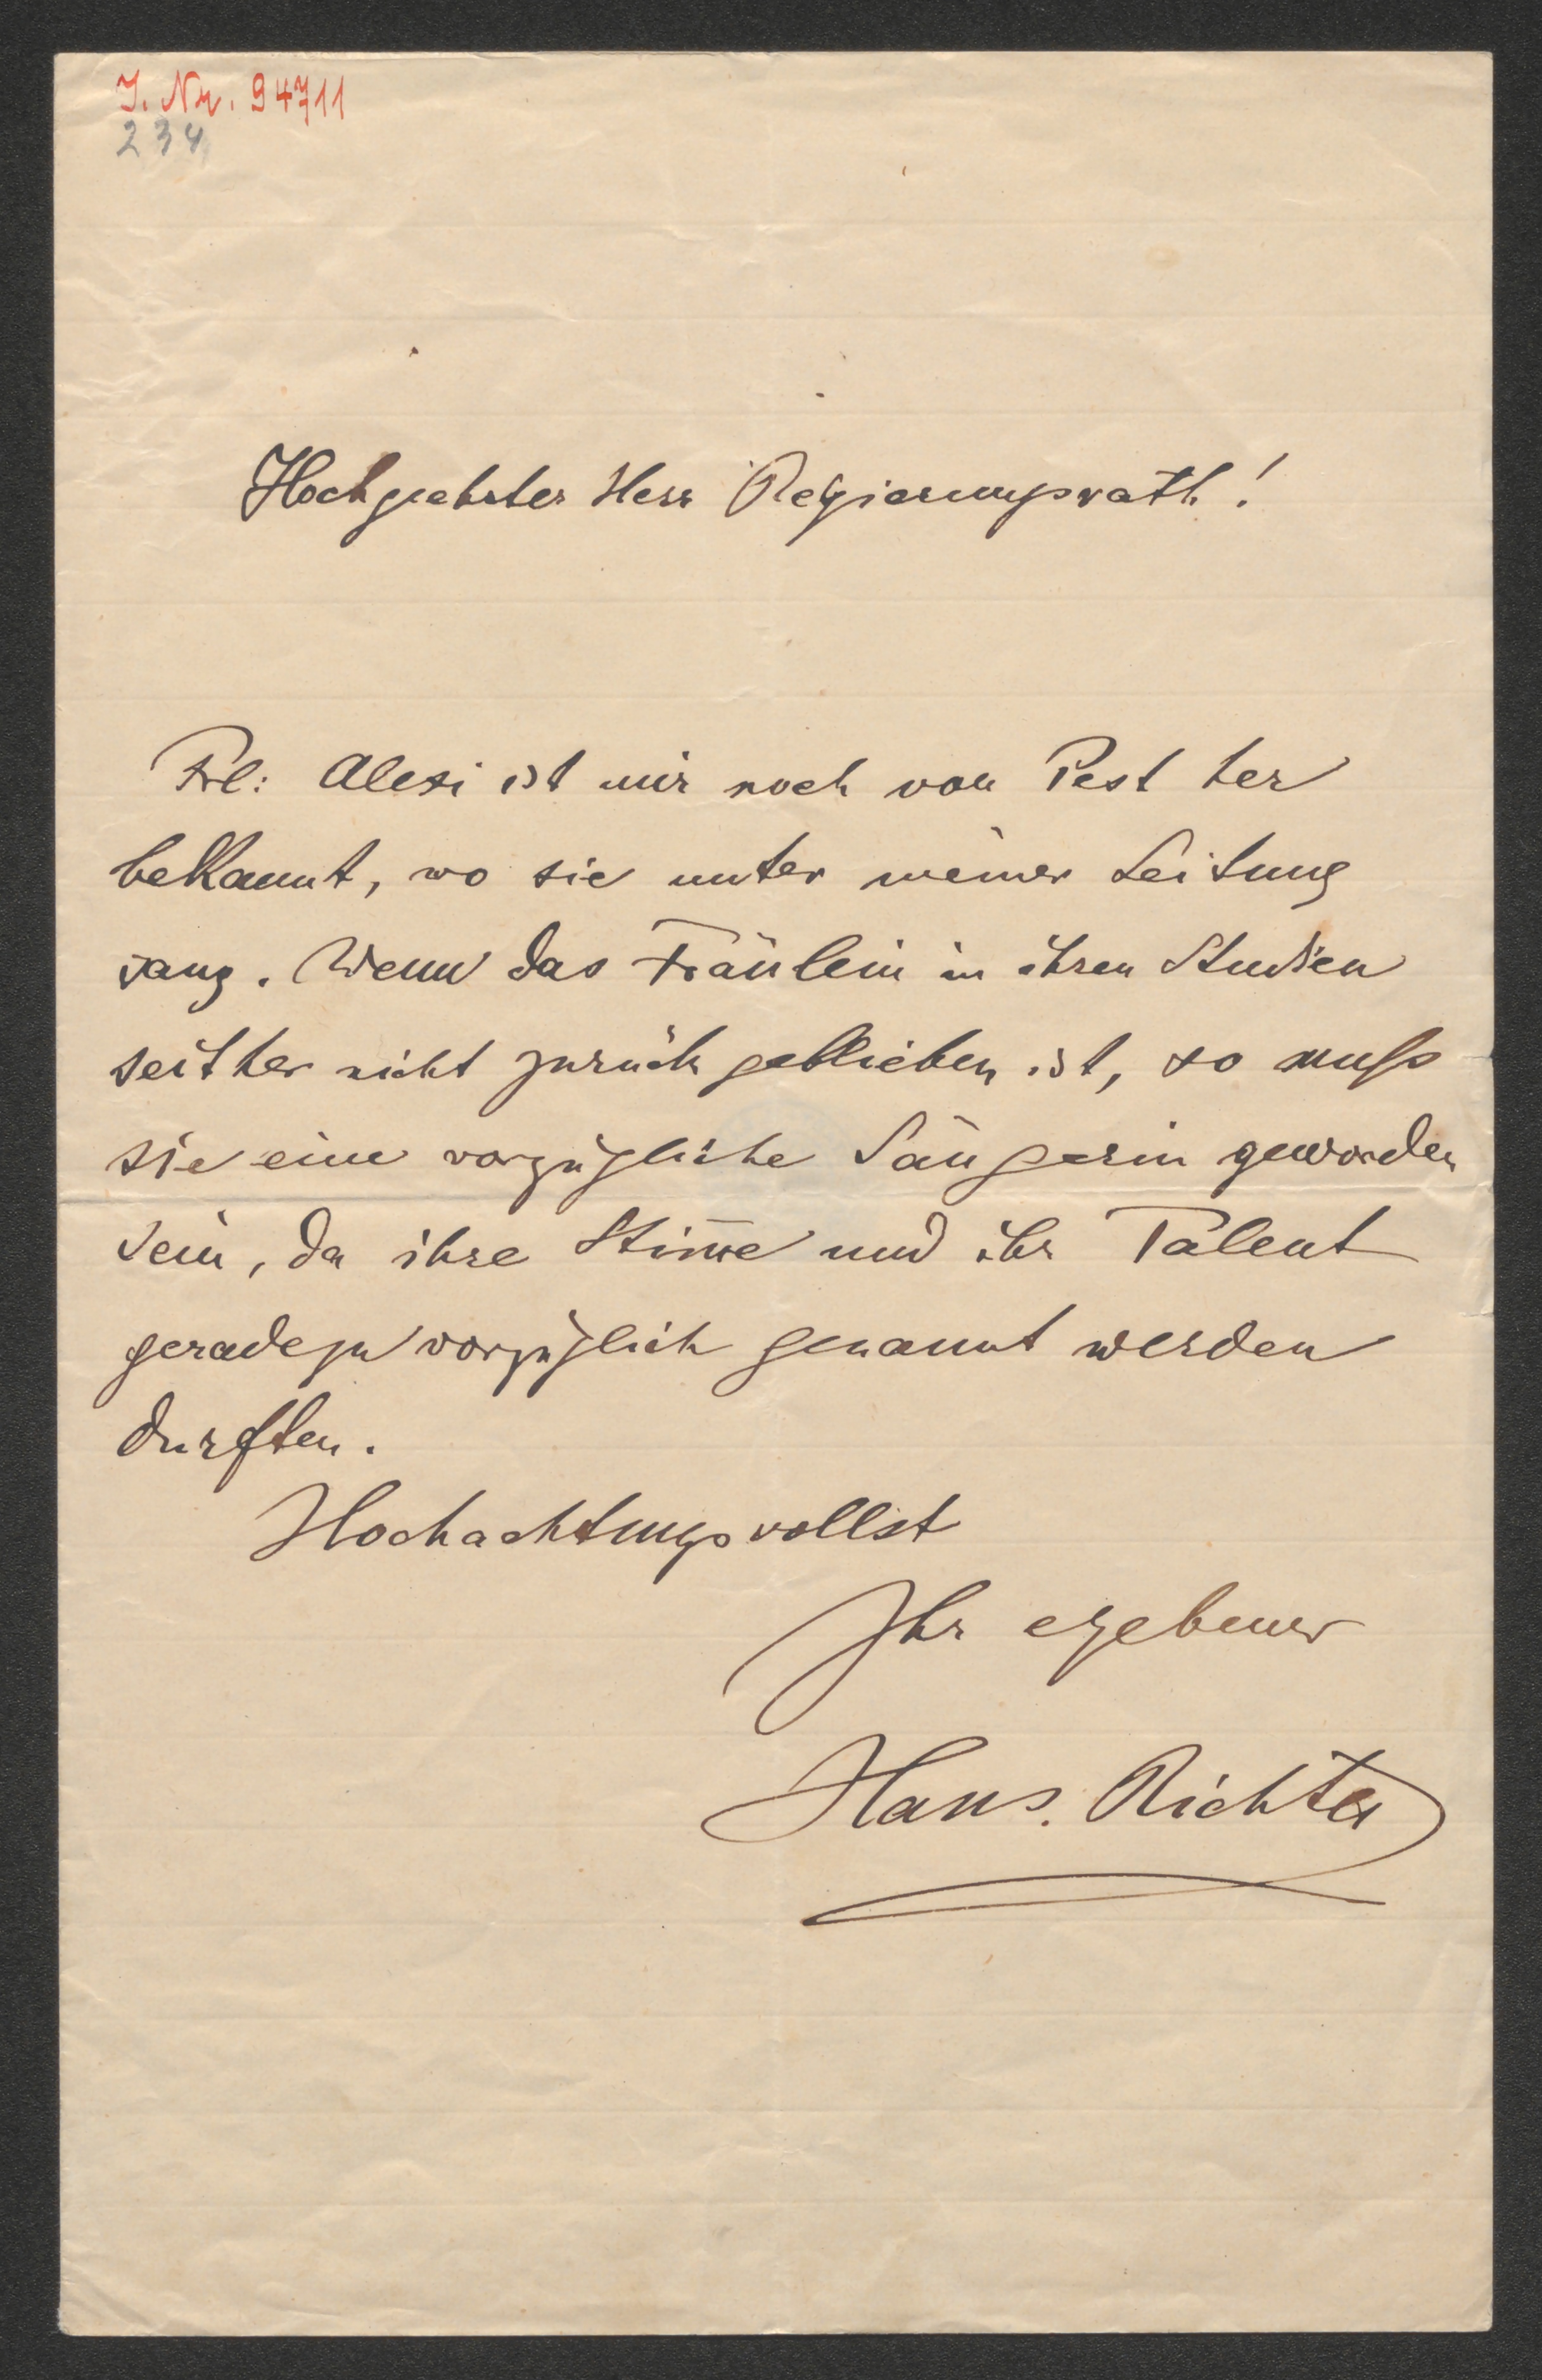 I. Nr. 94711
234
Hochgeehrter Herr Regierungsrath!
Frl: Alexi ist mir noch von Pest her
bekannt, wo sie unter meiner Leitung
sang. Wenn das Fräulein in ihren Studien
seither nicht zurück geblieben ist, so muß
sie eine vorzügliche Sängerin geworden
sein, da ihre Stim̄e und ihr Talent
geradezu vorzüglich genannt werden
durften.
Hochachtungsvollst
Ihr ergebener
Hans. Richter